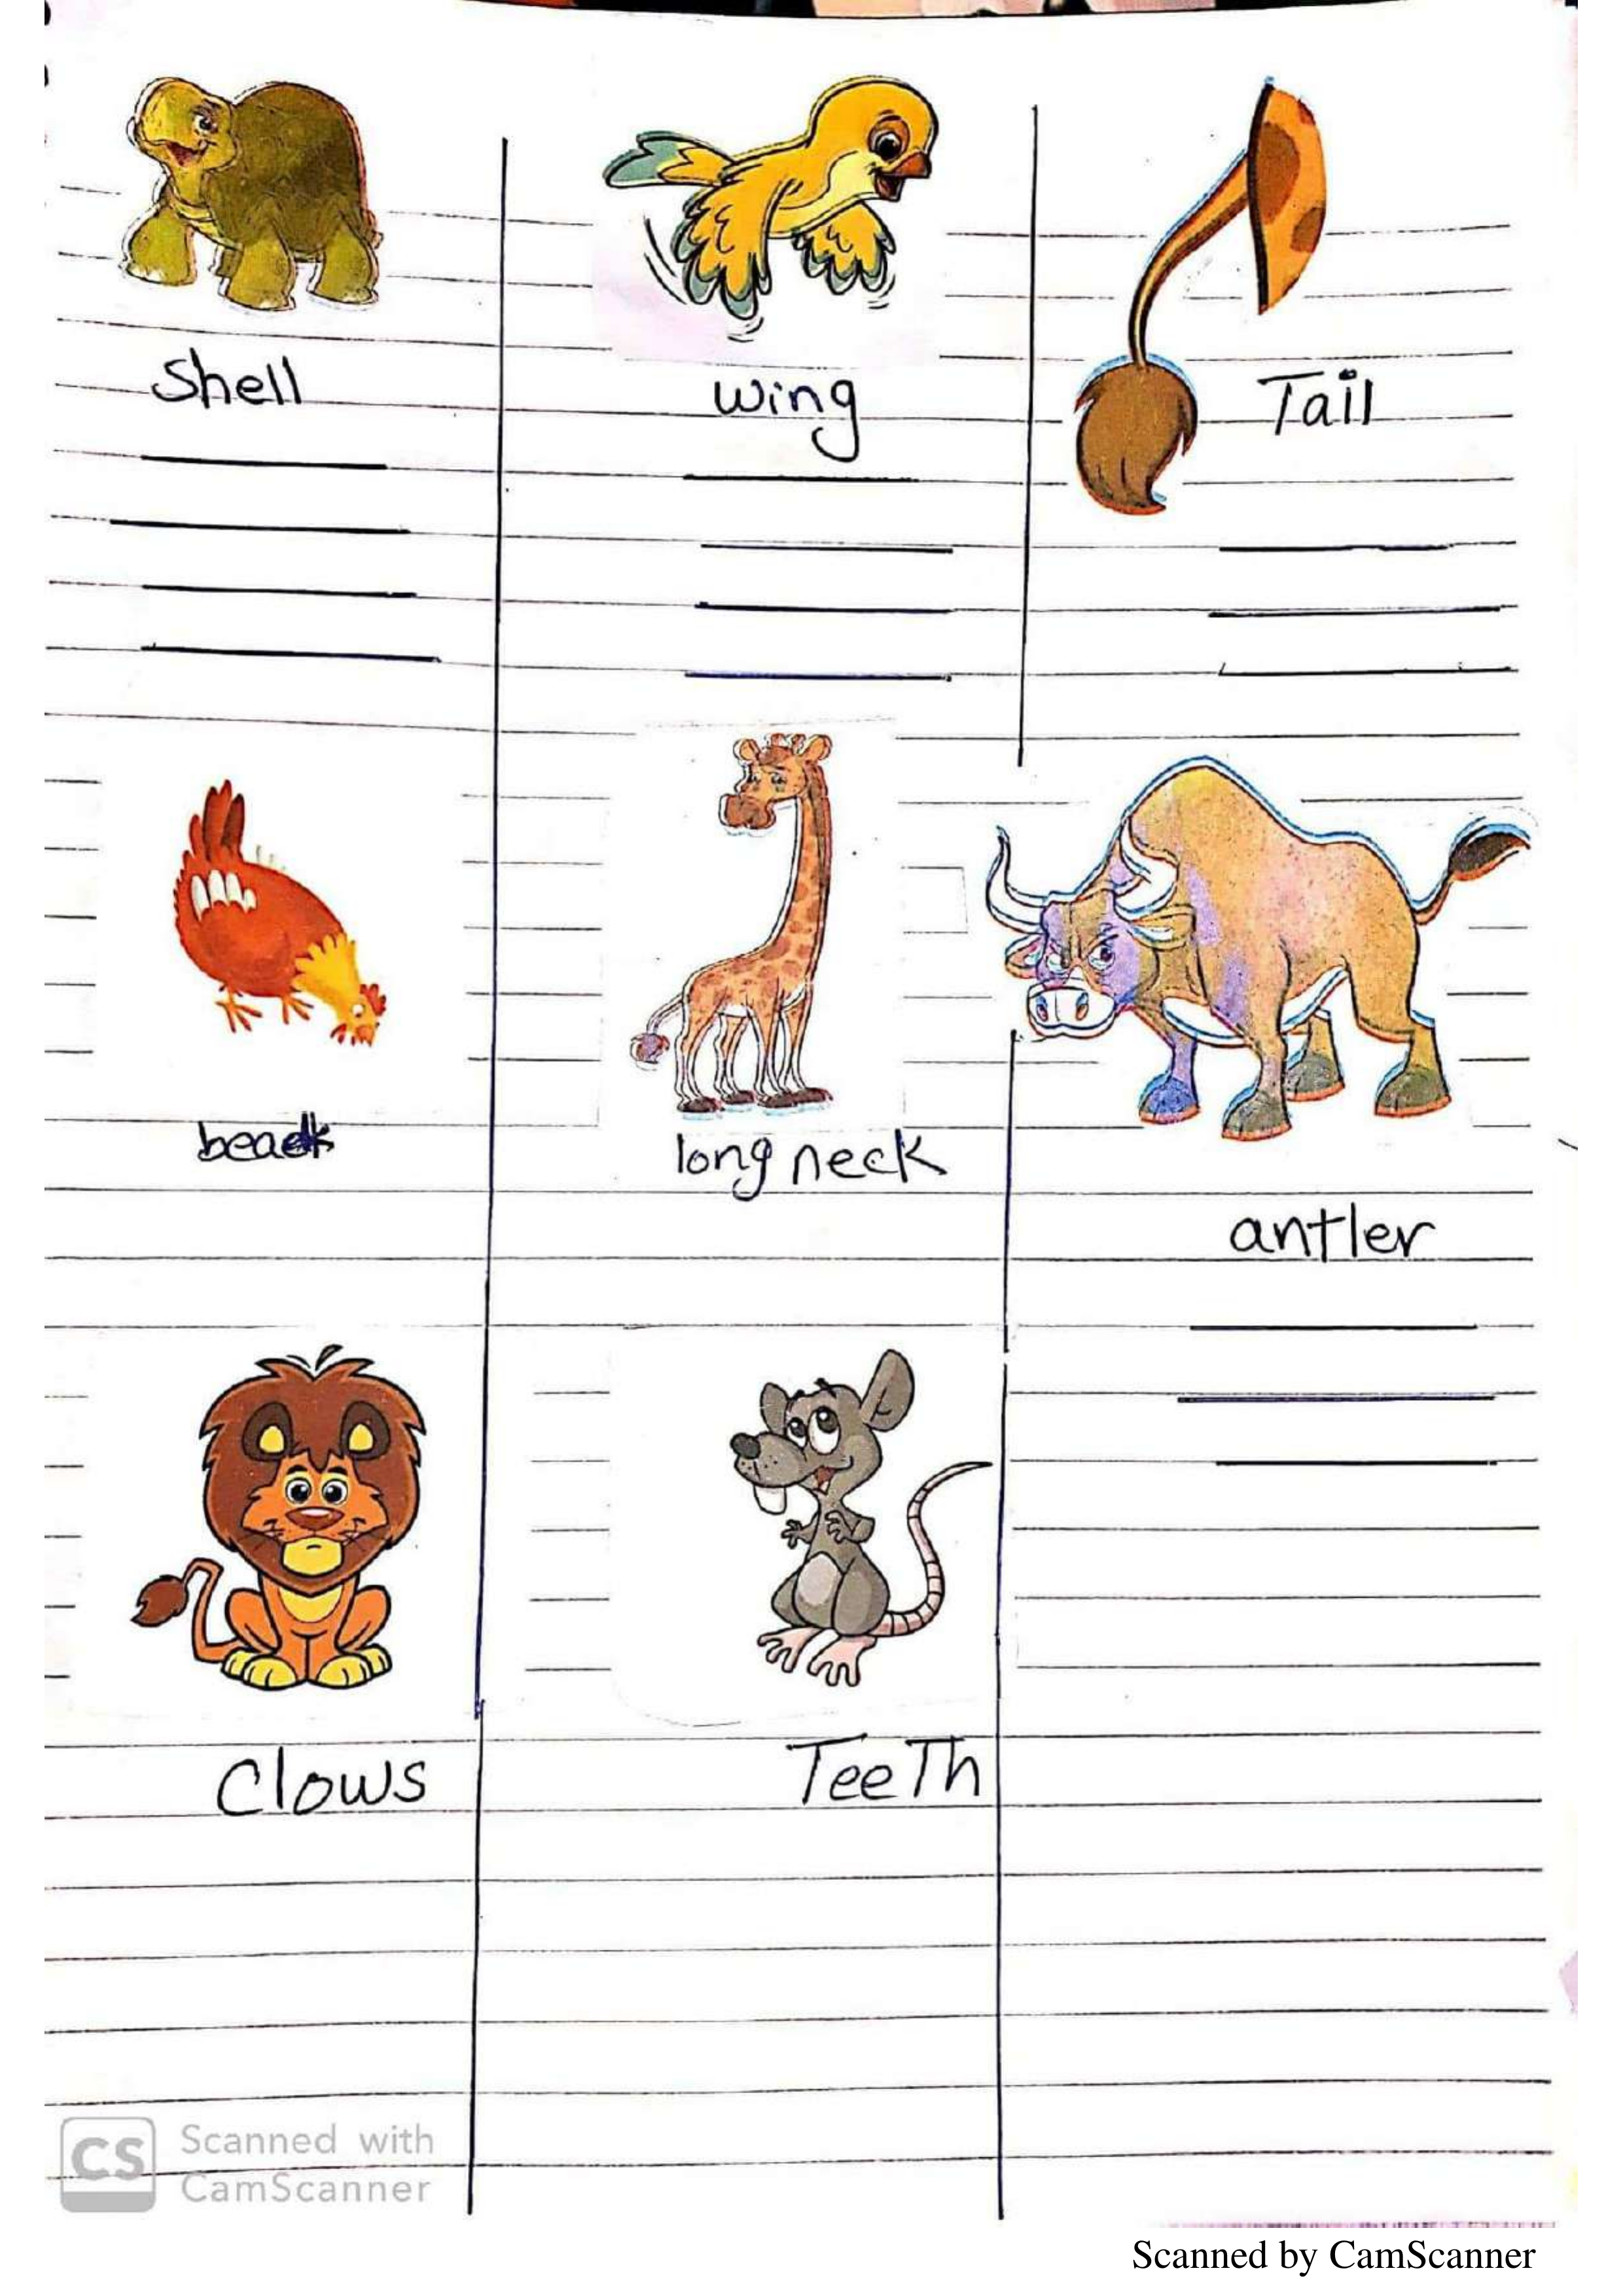 Shell
wing
Tail
beak
long neck
antler
Clows
TeeTh
CS
Scanned with
CamScanner
Scanned by CamScanner